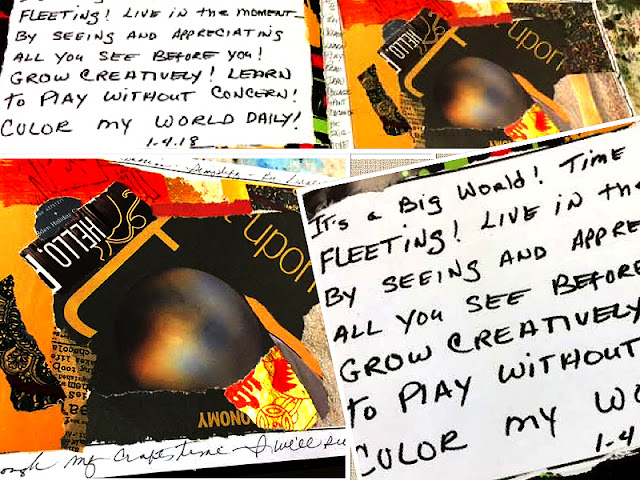 FLEETING! LIVE IN the MOMENT—
BY SEEING AND APPRECIATING
ALL YOU SEE BEFORE YOU!
GROW CREATIVELY! LEARN
to PLAY WITHOUT CONCERN!
COLOR my WORLD DAILY!
1-4-18
HELLO
upon
HELLO
upon
ONOMY
my Crafts time - I will
It's a Big World! Time
FLEETING! LIVE IN the
BY SEEING AND APPRE
ALL YOU SEE BEFORE
GROW CREATIVELY
to PLAY WITHOUT
COLOR my WO
1-4